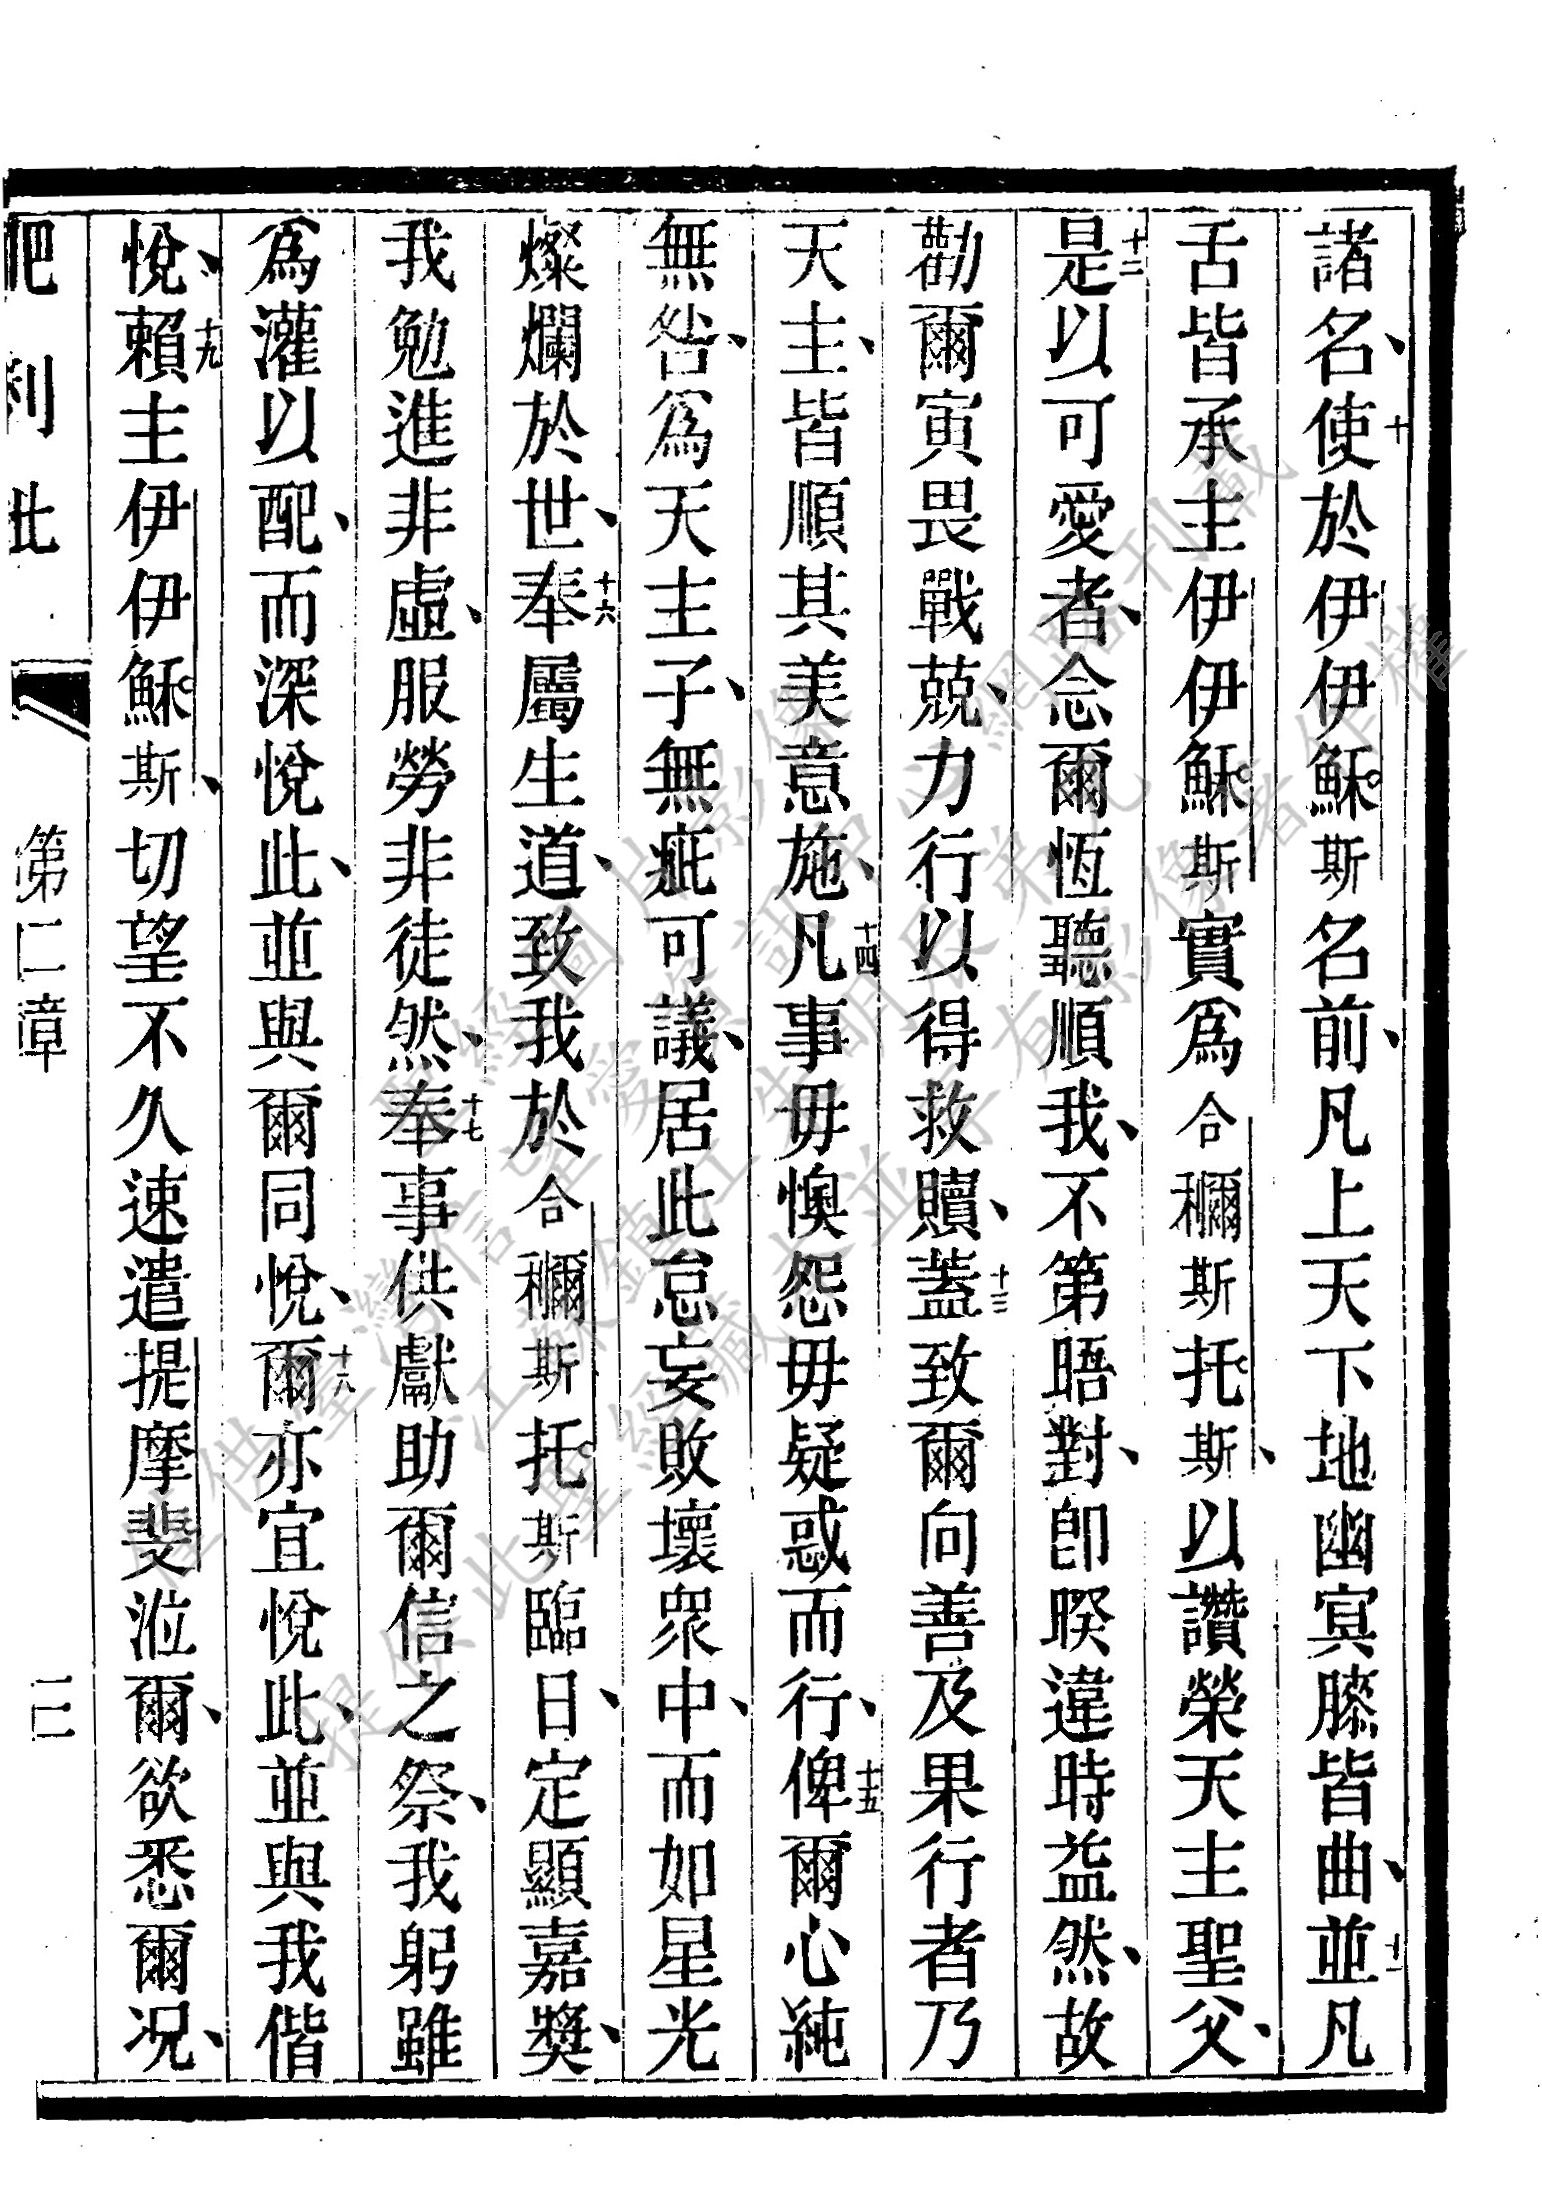 諸名、十使於伊伊穌斯名前、凡上天下地幽冥膝皆曲、十一並凡
舌皆承主伊伊穌斯實爲合穪斯托斯、以讚榮天主聖父、
十二是以可愛者、念爾恆聽順我、不第晤對、卽暌違時益然、故
勸爾寅畏戰兢、力行以得救贖、十三蓋致爾向善及果行者乃
天主、皆順其美意施、十四凡事毋懊怨毋疑惑而行、十五俾爾心純
無咎、爲天主子、無疵可議、居此怠妄敗壞眾中、而如星光
燦爛於世、十六奉屬生道、致我於合穪斯托斯臨日、定顯嘉獎、
我勉進非虛、服勞非徒然、十七奉事供獻助爾信之祭、我躬雖
爲灌以配、而深悅此、並與爾同悅、十八爾亦宜悅此、並與我偕
悅、十九賴主伊伊穌斯、切望不久速遣提摩斐涖爾、欲悉爾况、
肥利批 第二章 三
僅供臺灣信望愛資訊中心網路刊載